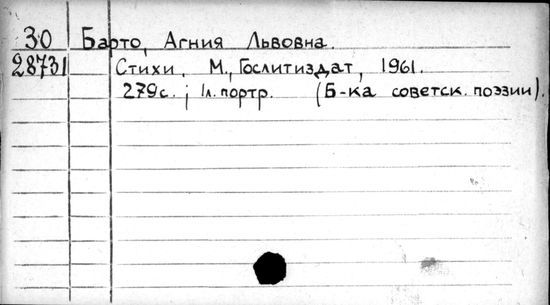 30 Барто, Агния Львовна.
28731 Стихи. М., Гослитиздат, 1961.
279с.; 1л. портр. (Б-ка советск. поэзии).